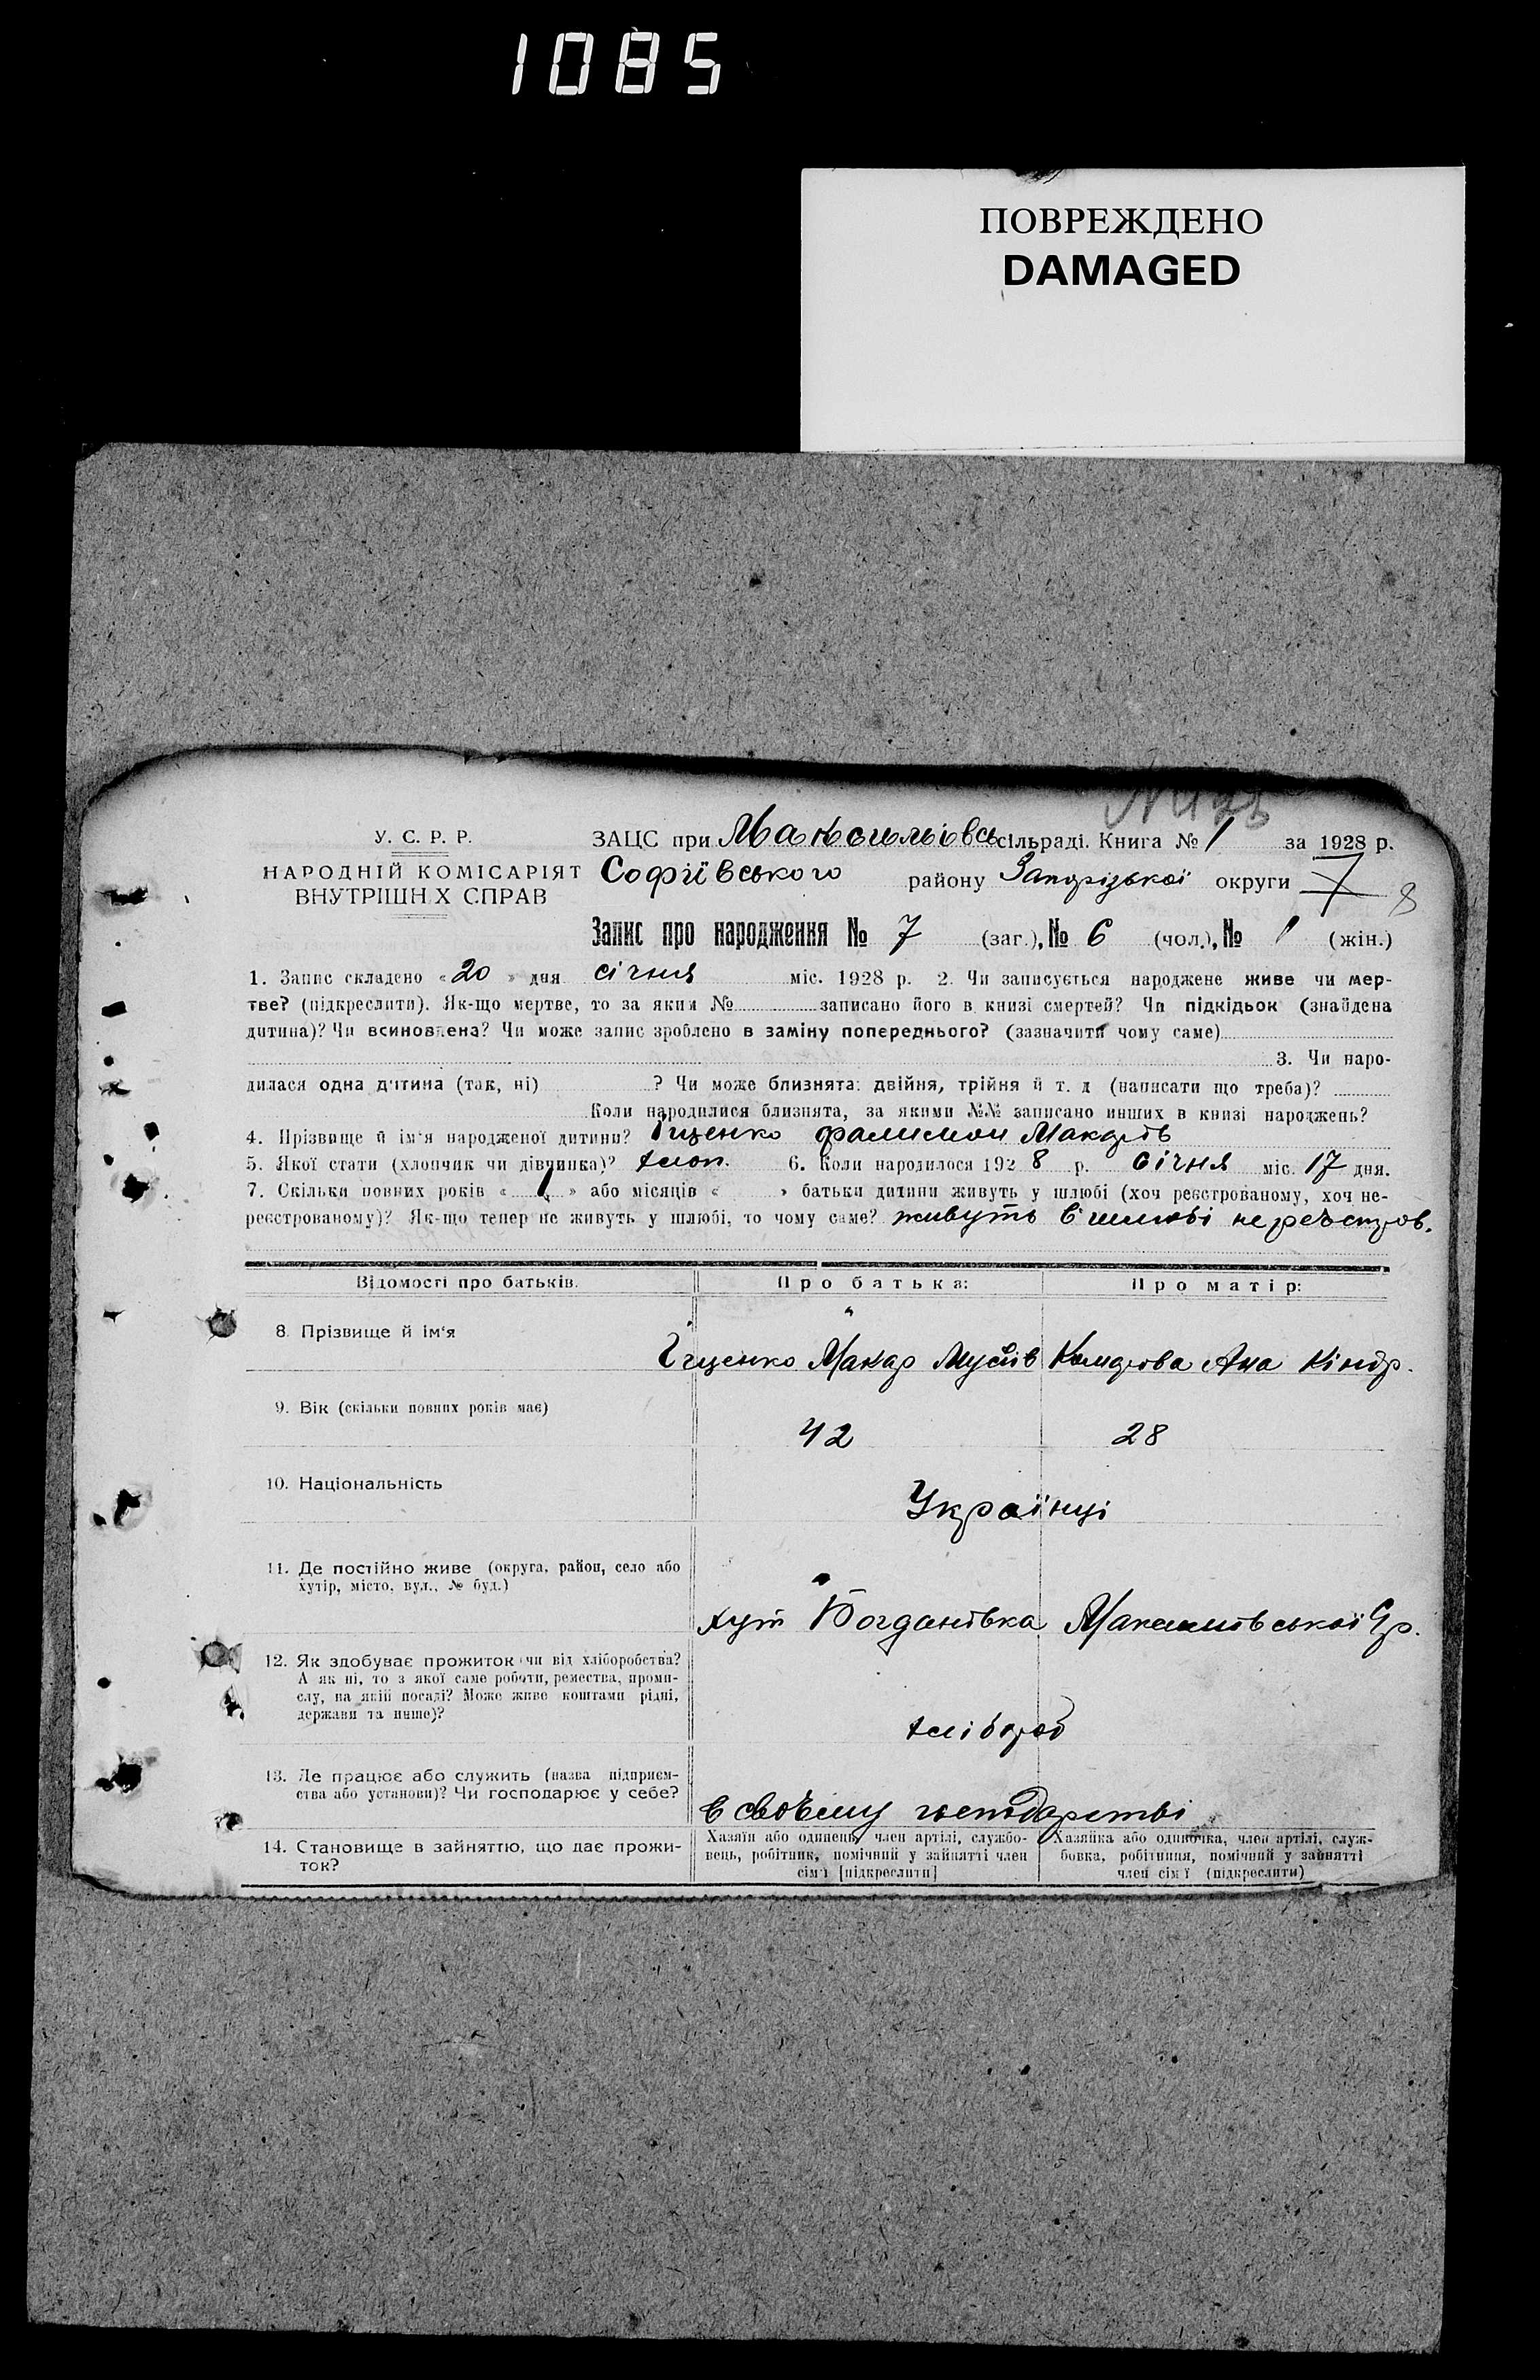 1085
ПОВРЕЖДЕНО
DAMAGED
У. С. Р. Р.
НАРОДНІЙ КОМІСАРІЯТ
ВНУТРІШН Х СПРАВ
ЗАЦС при Максимівсь сільраді. Книга № 1 за 1928 р.
Софіївського району Запорізької округи 7 8
Запис про народження № 7 (заг.), № 6 (чол.), № 1 (жін.)
1. Запис складено «20» дня січня міс. 1928 р. 2. Чи записується народжене живе чи мер-
тве? (підкреслити). Як-що мертве, то за яким № записано його в книзі смертей? Чи підкідьок (знайдена
дитина)? Чи всиновлена? Чи може запис зроблено в заміну попереднього? (зазначити чому саме)
3. Чи наро-
дилася одна дитина (так, ні) ? Чи може близнята: двійня, трійня й т. д (написати що треба)?
Коли народилися близнята, за якими №№ записано инших в книзі народжень?
4. Прізвище й ім'я народженої дитини? Гищенко Филимон Макарів
5. Якої стати (хлопчик чи дівчинка)? хлоп. 6. Коли народилося 1928 р. січня міс. 17 дня.
7. Скільки повних років «1» або місяців « » батьки дитини живуть у шлюбі (хоч реєстрованому, хоч не-
реєстрованому)? Як-що тепер не живуть у шлюбі, то чому саме? живуть в шлюбі не реєстров.
Відомості про батьків. Про батька: Про матір:
8. Прізвище й ім'я
Гищенко Макар Мусіїв Ана Кіндр.
9. Вік (скільки повних років має)
42 28
10. Національність
Українці
11. Де постійно живе (округа, район, село або
хутір, місто, вул., № буд.)
хут Богданівка Максимівської С/р.
12. Як здобуває прожиток (чи від хліборобства?
А як ні, то з якої саме роботи, ремества, проми-
слу, на якій посаді? Може живе коштами рідні,
держави та инше)?
хлібороб
13. Де працює або служить (назва підприєм-
ства або установи)? Чи господарює у себе?
в своєму господарстві
14. Становище в зайняттю, що дає прожи-
ток?
Хазяїн або одинець, член артілі, службо-
вець, робітник, помічний у зайнятті член
сім'ї [підкреслити]
Хазяйка або одиночка, член артілі, служ-
бовка, робітниця, помічний у зайнятті
член сім'ї (підкреслити)